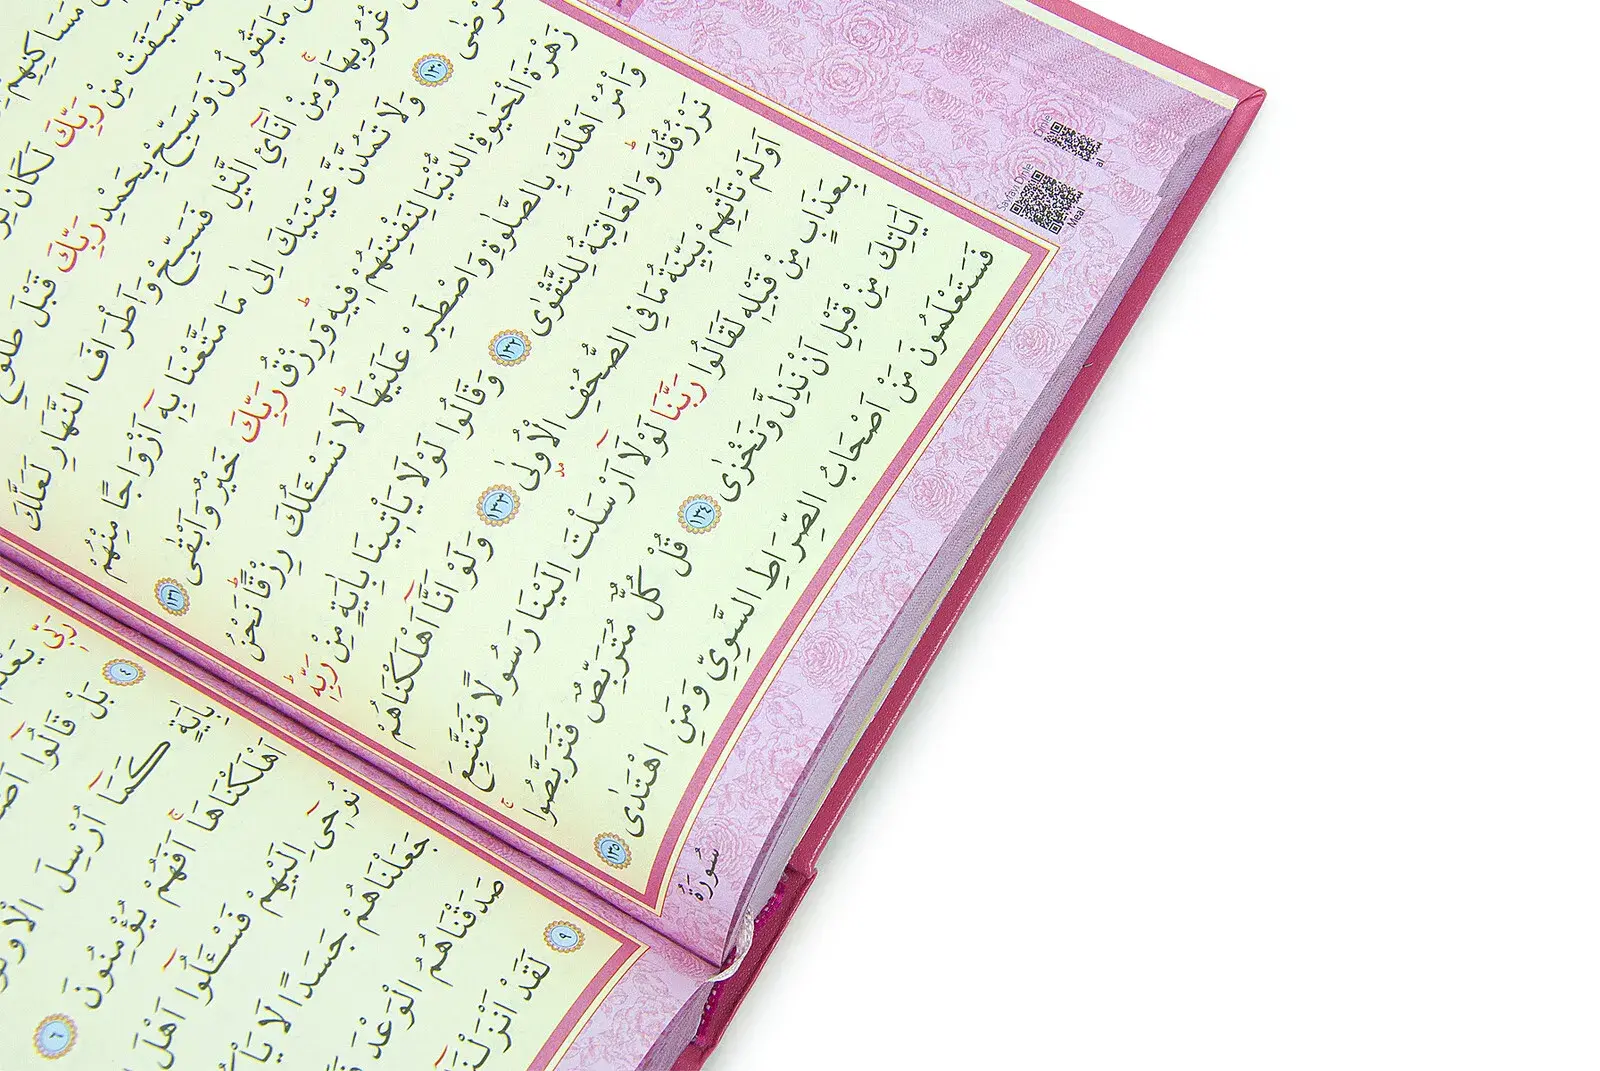 مَسَاكِنِهِمْ
سَبَقَتْ مِنْ رَبِّكَ لَكَانَ
مَا يَقُولُونَ وَسَبِّحْ بِحَمْدِ رَبِّكَ قَبْلَ طُلُوعِ
غُرُوبِهَا وَمِنْ اٰنَٓائِ الَّيْلِ فَسَبِّحْ وَاَطْرَافَ النَّهَارِ لَعَلَّكَ
﴿١٣٠﴾ وَلَا تَمُدَّنَّ عَيْنَيْكَ اِلٰى مَا مَتَّعْنَا بِهٖٓ اَزْوَاجًا مِنْهُمْ
زَهْرَةَ الْحَيٰوةِ الدُّنْيَا لِنَفْتِنَهُمْ فِيهِ وَرِزْقُ رَبِّكَ خَيْرٌ وَاَبْقٰى ﴿١٣١﴾
وَأْمُرْ اَهْلَكَ بِالصَّلٰوةِ وَاصْطَبِرْ عَلَيْهَا لَا نَسْـَٔلُكَ رِزْقًا نَحْنُ
نَرْزُقُكَ وَالْعَاقِبَةُ لِلتَّقْوٰى ﴿١٣٢﴾ وَقَالُوا لَوْلَا يَأْتِينَا بِاٰيَةٍ مِنْ رَبِّهٖ
اَوَلَمْ تَأْتِهِمْ بَيِّنَةُ مَا فِي الصُّحُفِ الْاُولٰى ﴿١٣٣﴾ وَلَوْ اَنَّٓا اَهْلَكْنَاهُمْ
بِعَذَابٍ مِنْ قَبْلِهٖ لَقَالُوا رَبَّنَا لَوْلَٓا اَرْسَلْتَ اِلَيْنَا رَسُولًا فَنَتَّبِعَ
اٰيَاتِكَ مِنْ قَبْلِ اَنْ نَذِلَّ وَنَخْزٰى ﴿١٣٤﴾ قُلْ كُلٌّ مُتَرَبِّصٌ فَتَرَبَّصُوا
فَسَتَعْلَمُونَ مَنْ اَصْحَابُ الصِّرَاطِ السَّوِيِّ وَمَنِ اهْتَدٰى ﴿١٣٥﴾
سُورَةُ
Sayfayı Dinle
Meal
رَبِّي يَعْلَمُ
﴿٤﴾ بَلْ قَالُٓوا
بِاٰيَةٍ كَمَٓا اُرْسِلَ الْاَوَّلُونَ
اَهْلَكْنَاهَا اَفَهُمْ يُؤْمِنُونَ ﴿٦﴾
نُوحِٓي اِلَيْهِمْ فَسْـَٔلُٓوا اَهْلَ
جَعَلْنَاهُمْ جَسَدًا لَا
صَدَقْنَاهُمُ الْوَعْدَ
﴿٩﴾ لَقَدْ اَنْزَلْنَٓا